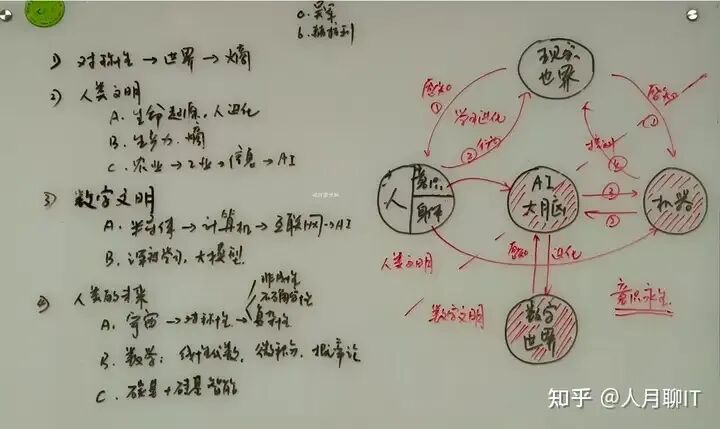 a. 吴军
b. 柏拉图
1) 对称性 → 世界 → 熵
2) 人类文明
A. 生命起源,人进化
B. 生命力 熵
C. 农业 → 工业 → 信息 → AI
3) 数字文明
A. 半导体 → 计算机 → 互联网 → AI
B. 深度学习,大模型
4) 人类的未来
非线性
不确定性
A. 宇宙 → 对称性 → 复杂性
B. 数学:线性代数,微积分,概率论
C. 碳基 + 硅基智能
现实
世界
感知
①
学习进化
② 行为
感知
①
④
人
意识
身体
AI
大脑
③
②
机器
人类文明
感知
进化
数字文明
数字
世界
意识永生
知乎 @人月聊IT